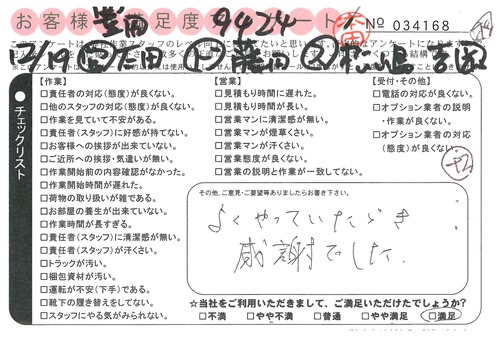 お客様満足度アンケート
豊田 9424
太田
No 034168
【作業】
□責任者の対応(態度)が良くない。
□他のスタッフの対応(態度)が良くない。
□作業を見ていて不安がある。
□責任者(スタッフ)に好感が持てない。
□お客様への挨拶が出来ていない。
□ご近所への挨拶・気遣いが無い。
□作業開始前の内容確認がなかった。
□作業開始時間が遅れた。
□荷物の取り扱いが雑である。
□お部屋の養生が出来ていない。
□作業時間が長すぎる。
□責任者(スタッフ)に清潔感が無い。
□責任者(スタッフ)が汗くさい。
□トラックが汚い。
□梱包資材が汚い。
□運転が不安(下手)である。
□靴下の履き替えをしてない。
□スタッフにやる気がみられない。
チェックリスト
【営業】
□見積もり時間に遅れた。
□見積もり時間が長い。
□営業マンに清潔感が無い。
□営業マンが煙草くさい。
□営業マンが汗くさい。
□営業態度が良くない。
□営業の説明と作業が一致してない。
【受付・その他】
□電話の対応が良くない。
□オプション業者の説明
・作業が良くない。
□オプション業者の対応
(態度)が良くない。
+2
その他、ご意見・ご要望等ありましたらお書き下さい。
よくやっていただき
感謝でした。
☆当社をご利用いただきまして、ご満足いただけたでしょうか?
□不満 □やや不満 □普通 □やや満足 □満足